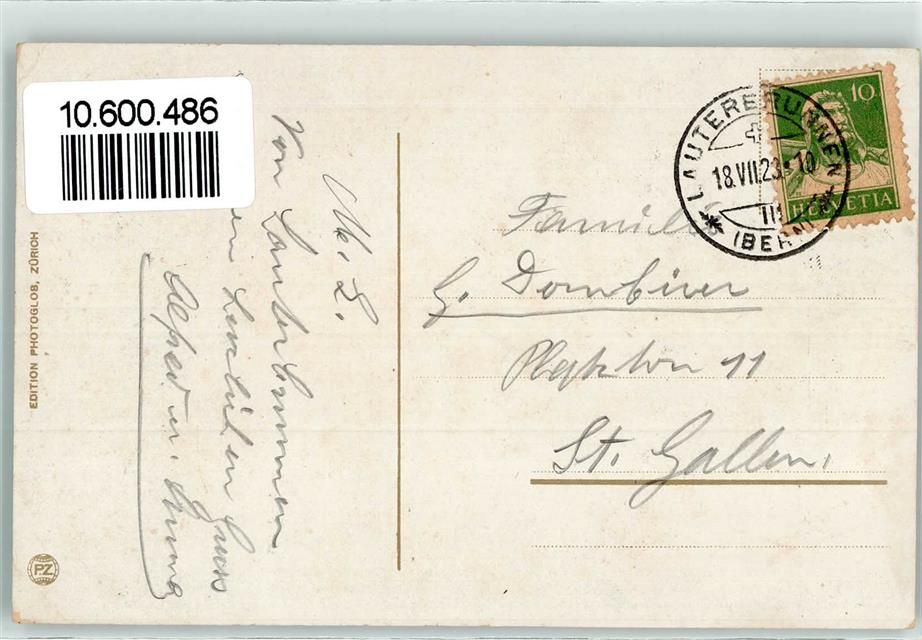 10.600.486
EDITION PHOTOGLOB, ZÜRICH
PZ
M. L.
Von Lauterbrunnen
en herzlichen Gruss
Alfred u. Emma
LAUTERBRUNNEN
18.VII.23.10
(BERN)
10
HELVETIA
Familie
G. Dornbirer
11
St. Gallen.